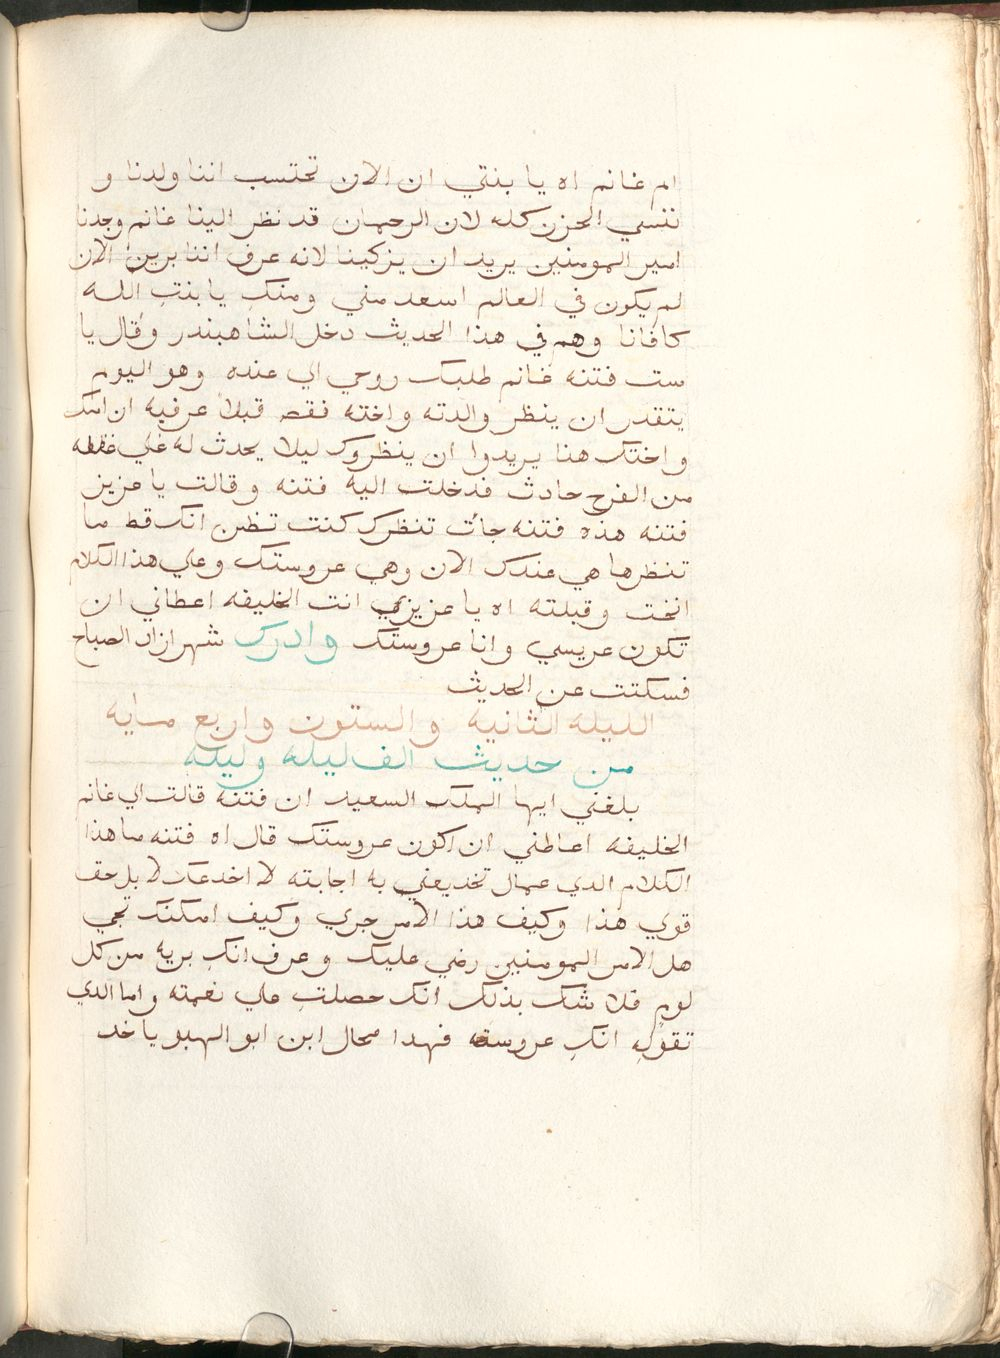 ام غانم اه يا بنتي ان الان تحتسب اننا ولدنا و
ننسي الحزن كله لان الرحمان قد نظر الينا غانم وجدنا
امير المومنين يريد ان يزكينا لانه عرف اننا بريين الان
لم يكون في العالم اسعد مني ومنكِ يا بنتِ الله
كافانا وهم في هذا الحديث دخل الشاهبندر وقال يا
ست فتنه غانم طلبك روحي الي عنده وهو اليوم
يتقدر ان ينظر والدته واخته فقص قبلاً عرفيه ان امك
واختك هنا يريدوا ان ينظروك ليلا يحدث له علي غفله
من الفرح حادث فدخلت اليه فتنه وقالت يا عزيز
فتنه هذه فتنه جأت تنظرك كنت تظن انك قط ما
تنظرها هي عندك الان وهي عروستك وعلي هذا الكلام
انحنت وقبلته اه يا عزيزي انت الخليفه اعطاني ان
تكون عريسي وانا عروستك وادرك شهرازاد الصباح
فسكتت عن الحديث
الليله الثانيه والستون واربع مايه
من حديث الف ليله وليله
بلغني ايها الملك السعيد ان فتنه قالت الي غانم
الخليفه اعاطني ان اكون عروستك قال اه فتنه ما هذا
الكلام الدي عمال تخديعني به اجابته لا اخدعك لا بل حق
قوي هذا وكيف هذا الامر جري وكيف امكنك تجي
هل الامر المومنين رضي عليك وعرف انكِ بريه من كل
لوم فلا شك بذلك انك حصلتِ علي نعمته واما الدي
تقولِ انكِ عروسته فهدا محال ابن ابو الهبو ياخد